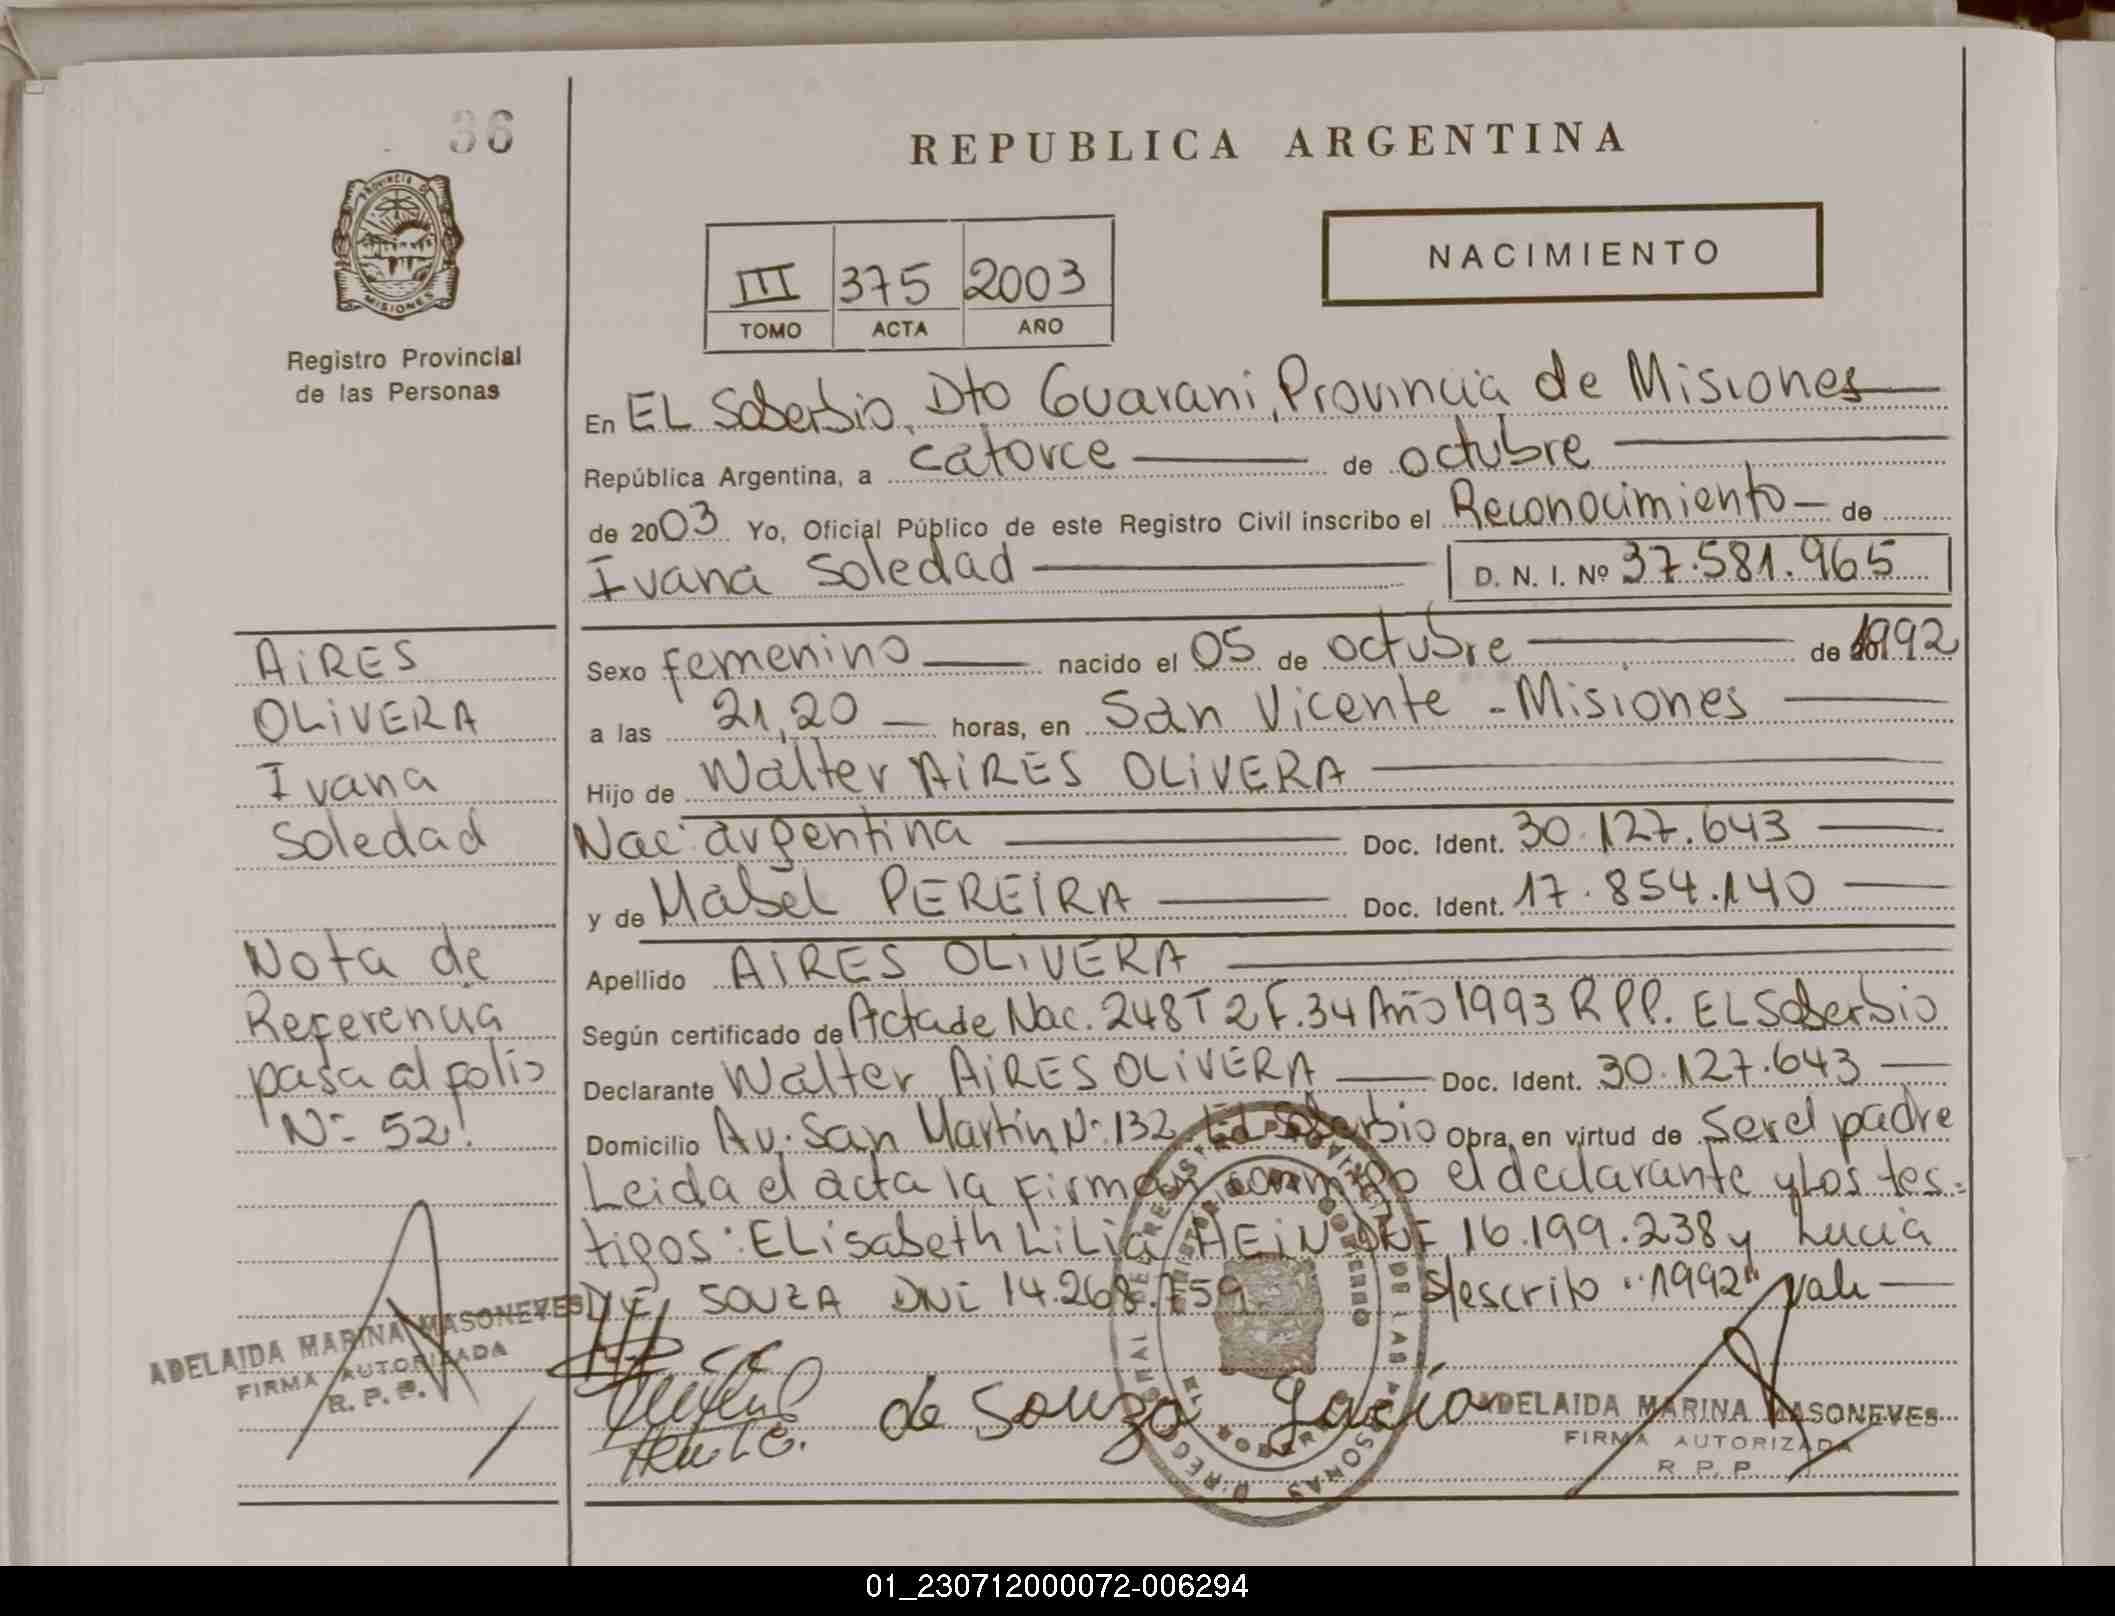 36
REPUBLICA ARGENTINA
PROVINCIA DE
MISIONES
Registro Provincial
de las Personas
NACIMIENTO
III 375 2003
TOMO ACTA AÑO
En EL Soberbio, Dto Guarani, Provincia de Misiones
República Argentina, a catorce de octubre
de 2003 Yo, Oficial Público de este Registro Civil inscribo el Reconocimiento de
Ivana Soledad D. N. I. Nº 37.581.965
Sexo femenino nacido el 05 de octubre de 1992
a las 21,20 horas, en San Vicente - Misiones
Hijo de Walter AIRES OLIVERA
Nac. argentina Doc. Ident. 30.127.643
y de Mabel PEREIRA Doc. Ident. 17.854.140
Apellido AIRES OLIVERA
Según certificado de Acta de Nac. 248 T 2 F. 34 Año 1993 R P P. EL Soberbio
Declarante Walter AIRES OLIVERA Doc. Ident. 30.127.643
Domicilio Av. San Martin Nº 132 El Soberbio Obra en virtud de Ser el padre
Leida el acta la firman conmigo el declarante y Los tes=
tigos: ELisabeth LiLia HEIN DNI 16.199.238 y Lucia
DE SOUZA DNI 14.268.759 S/escrito "1992" vale
de Souza Lucia
ADELAIDA MARINA MASONEVES
FIRMA AUTORIZADA
R. P. P.
AIRES
OLIVERA
Ivana
Soledad
Nota de
Referencia
pasa al folio
Nº 52.
ADELAIDA MARINA MASONEVES
FIRMA AUTORIZADA
R. P. P.
01_230712000072-006294